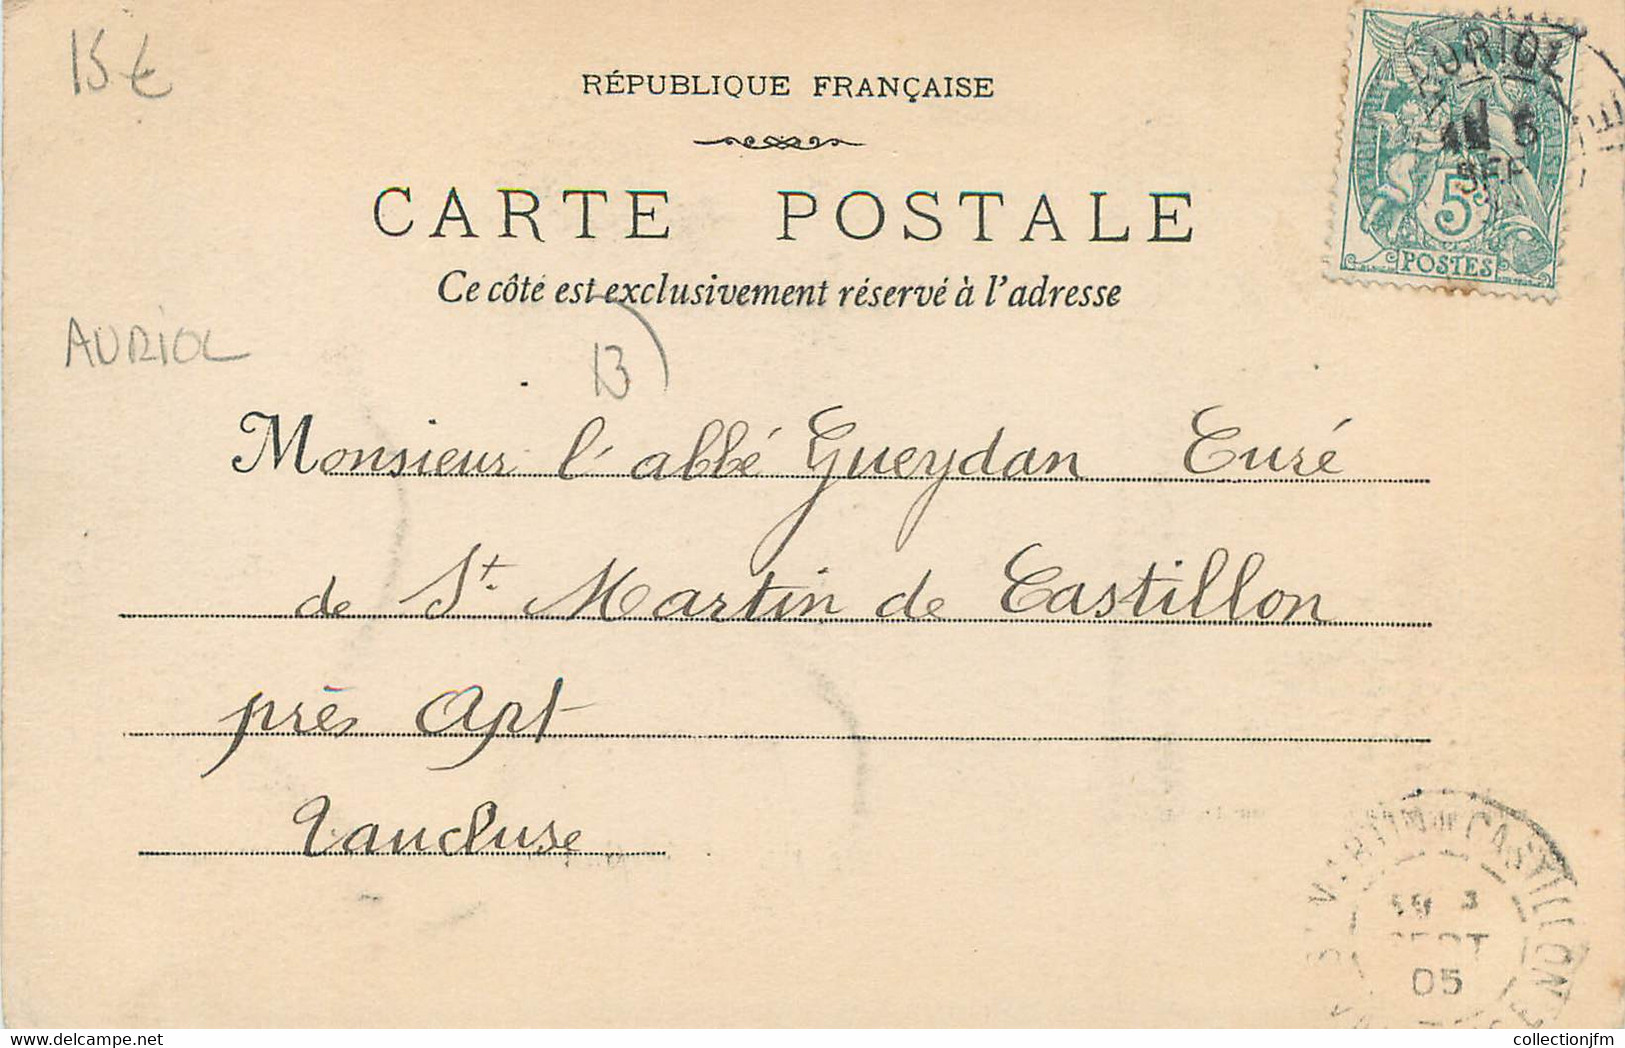 15€
RÉPUBLIQUE FRANÇAISE
CARTE POSTALE
Ce côté est exclusivement réservé à l'adresse
AURIOL
5c
POSTES
AURIOL
13
Monsieur l'abbé Gueydan Curé
de St. Martin de Castillon
près Apt
Vaucluse
MARTIN DE CASTILLON
SEPT
05
collectionjfm